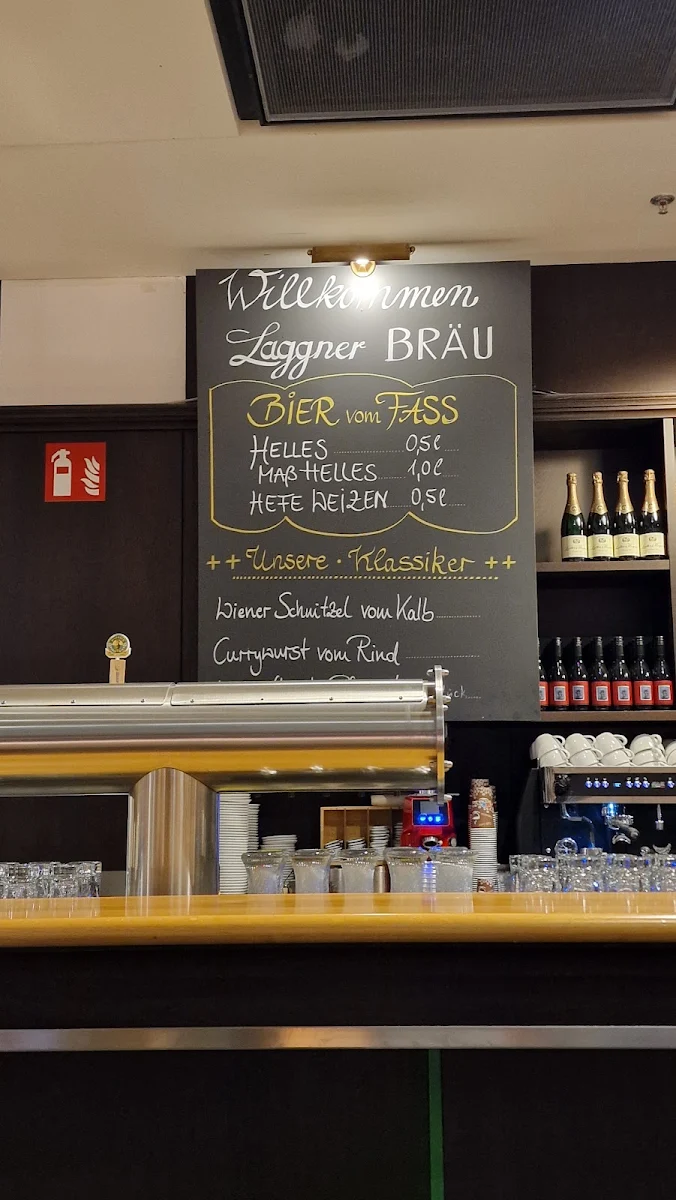 Willkommen
Laggner BRÄU
BIER vom FASS
HELLES ........... 0,5ℓ
MAẞ HELLES ..... 1,0ℓ
HEFE WEIZEN .... 0,5ℓ
++ Unsere · Klassiker ++
Wiener Schnitzel vom Kalb ........
Currywurst vom Rind ...............